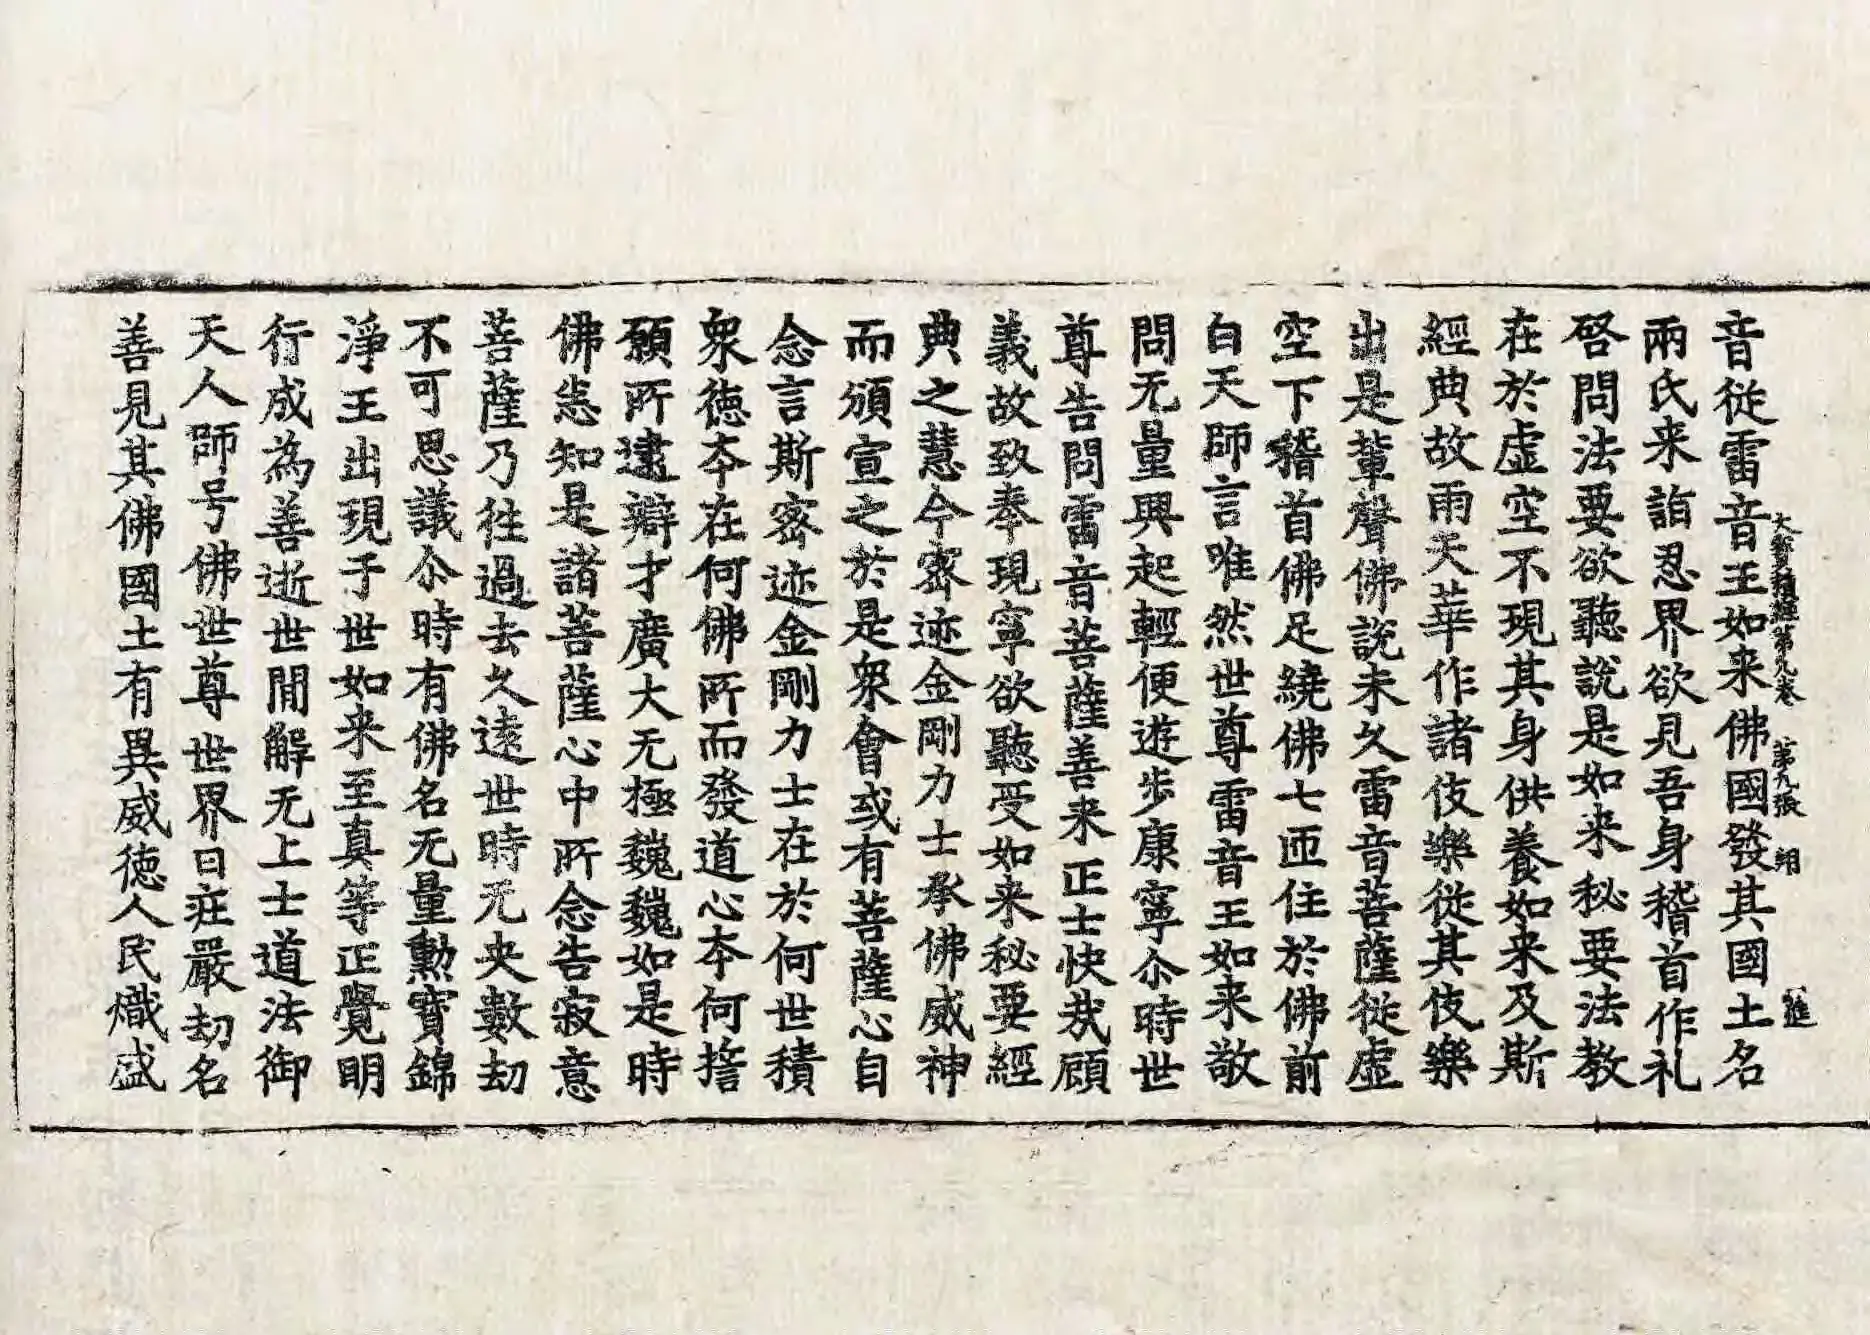 音從雷音王如来佛國發其國土名
大寶積經第九卷 第九張 翔
兩氏来詣忍界欲見吾身稽首作礼
啓問法要欲聽說是如来秘要法教
在於虛空不現其身供養如来及斯
經典故雨天華作諸伎樂從其伎樂
出是輩聲佛說未久雷音菩薩從虛
空下稽首佛足繞佛七匝住於佛前
白天師言唯然世尊雷音王如来敬
問无量興起輕便遊步康寧尒時世
尊告問雷音菩薩善来正士快哉顧
義故致奉現寧欲聽受如来秘要經
典之慧今密迹金剛力士承佛威神
而頒宣之於是衆會或有菩薩心自
念言斯密迹金剛力士在於何世積
衆德夲在何佛所而發道心夲何誓
願所逮辯才廣大无極巍巍如是時
佛悉知是諸菩薩心中所念告寂意
菩薩乃徃過去久遠世時无央數劫
不可思議尒時有佛名无量勲寶錦
淨王出現于世如来至真等正覺明
行成為善逝世閒解无上士道法御
天人師号佛世尊世界曰莊嚴劫名
善見其佛國土有異威德人民熾盛